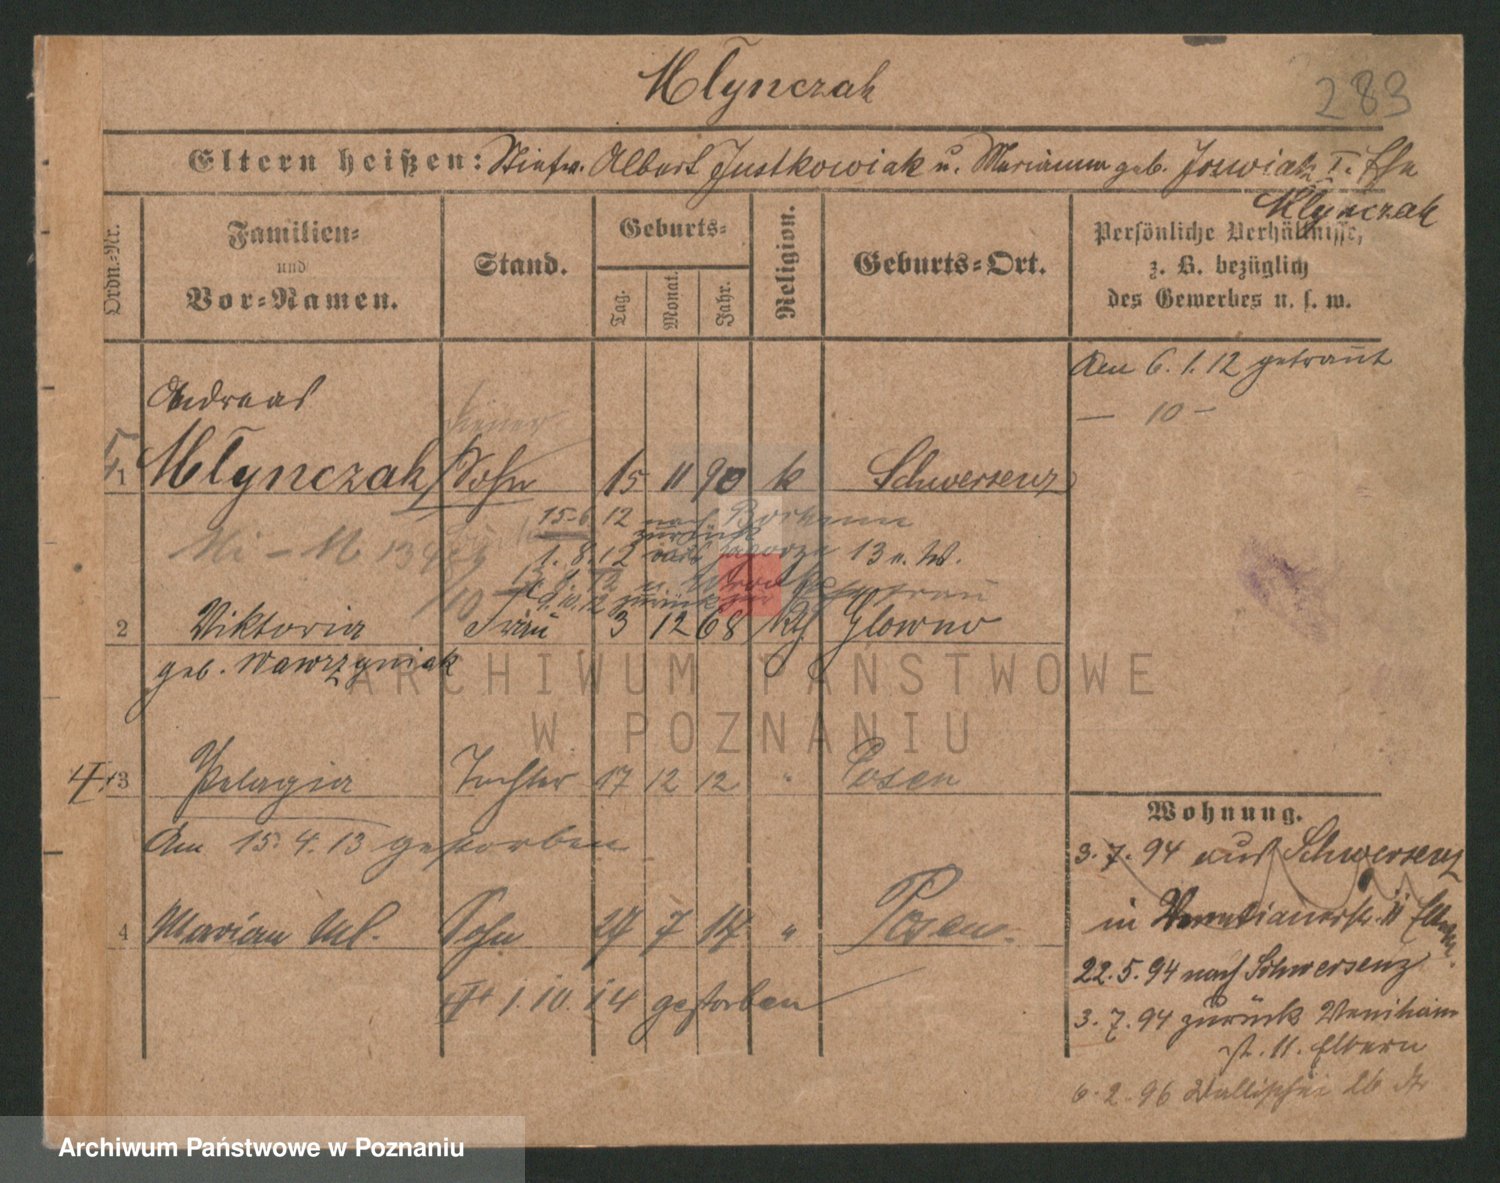 Młynczak
283
Eltern heißen: Stiefv. Albert Justkowiak u. Marianna geb. Joswiak I. Ehe
Młynczak
Ordn.-Nr.
Familien- und Vor-Namen.
Stand.
Geburts-
Tag.
Monat.
Jahr.
Religion.
Geburts-Ort.
Persönliche Verhältnisse, z. B. bezüglich des Gewerbes u. s. w.
Am 6. 1. 12 getraut
— 10 —
Andreas
1 Młynczak Sohn 15 11 90 k Schwersenz
15. 6. 12 nach
zurück
1. 8. 12 nach 13 u. W.
9. 10. 12 zurück
2 Viktoria Frau 3 12 68 kth Glowno
geb. Wawrzyniak
3 Pelagia Tochter 17 12 12 " Posen
Am 15. 4. 13 gestorben
4 Marian Ml. Sohn 27 7 14 " Posen
1. 10. 14 gestorben
Wohnung.
3. 7. 94 aus Schwersenz
in Venetianerstr. 11 Eltern.
22. 5. 94 nach Schwersenz
3. 7. 94 zurück Venetianer
st. 11. Eltern
6. 2. 96 Wallischei
ARCHIWUM PAŃSTWOWE
W POZNANIU
Archiwum Państwowe w Poznaniu